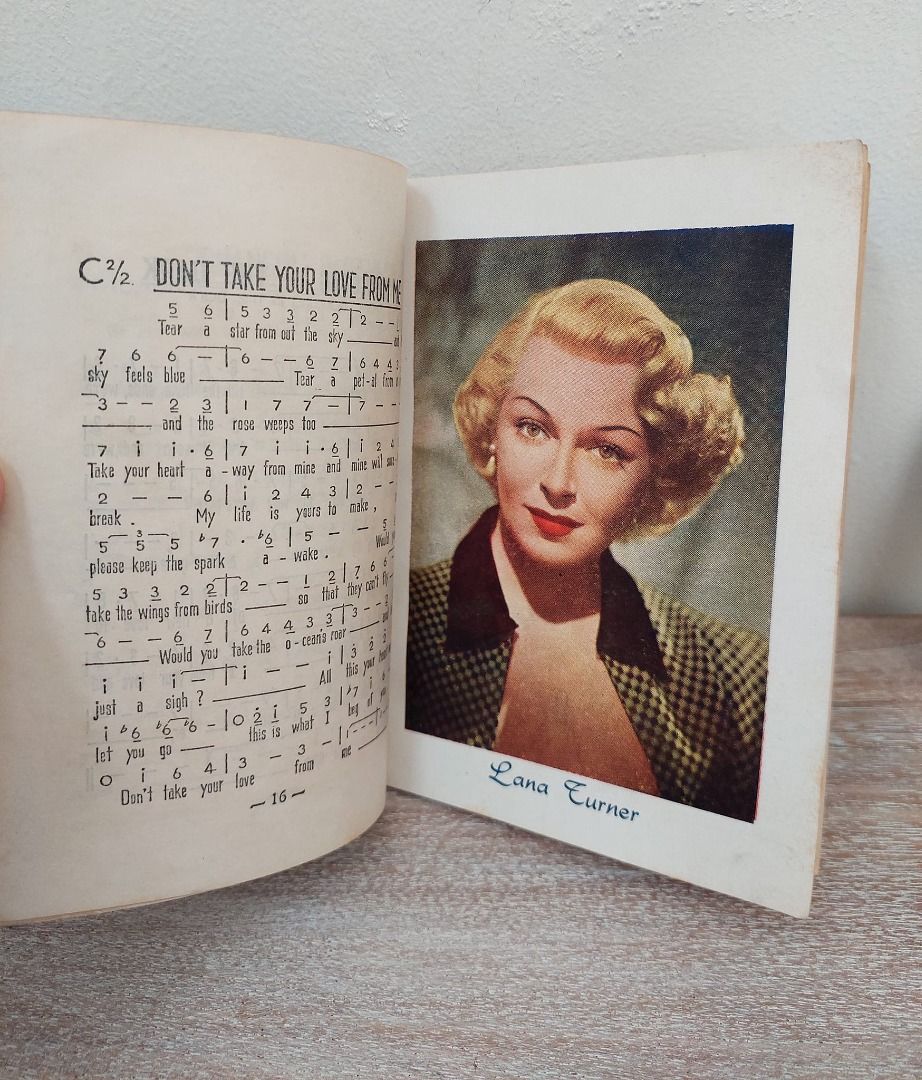 C 2/2. DON'T TAKE YOUR LOVE FROM ME
5 6 | 5 3 3 2 2 | 2 – –
Tear a star from out the sky
7 6 6 – | 6 – – 6 7 | 6 4 4 3
sky feels blue Tear a pet-al from
3 – – 2 3 | 1 7 7 – | 7 – –
and the rose weeps too
7 i i · 6 | 7 i i · 6 | i 2 4
Take your heart a-way from mine and mine will
2 – – 6 | i 2 4 3 | 2 – –
break . My life is yours to make ,
5 5 5 ♭7 · ♭6 | 5 – – 5
please keep the spark a-wake .
5 3 3 2 2 | 2 – – 1 2 | 7 6 6
take the wings from birds so that they can't fly
6 – – 6 7 | 6 4 4 3 3 | 3 – –
Would you take the o-cean's roar
i i i – | i – – i | 3 2 2
just a sigh ? All this your
i ♭6 ♭6 ♭6 – | 0 2 i 5 3 | ♭7 i 6
let you go this is what I beg of
0 i 6 4 | 3 – 3 – | 1 – – –
Don't take your love from me
~ 16 ~
Lana Turner